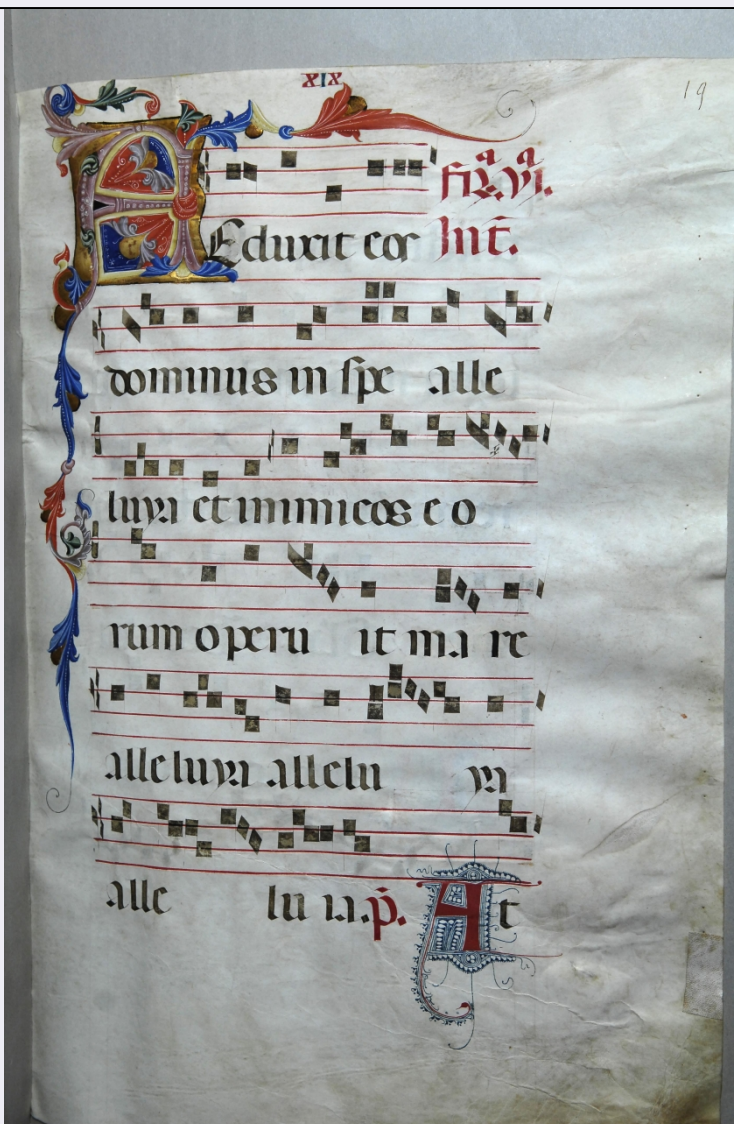 XIX
19
Eduxit eos
fr̄. vi.
Int̄.
dominus in spe alle
luya et inimicos e o
rum operu it ma re
alleluya allelu ya
alle lu ia. p̄. At